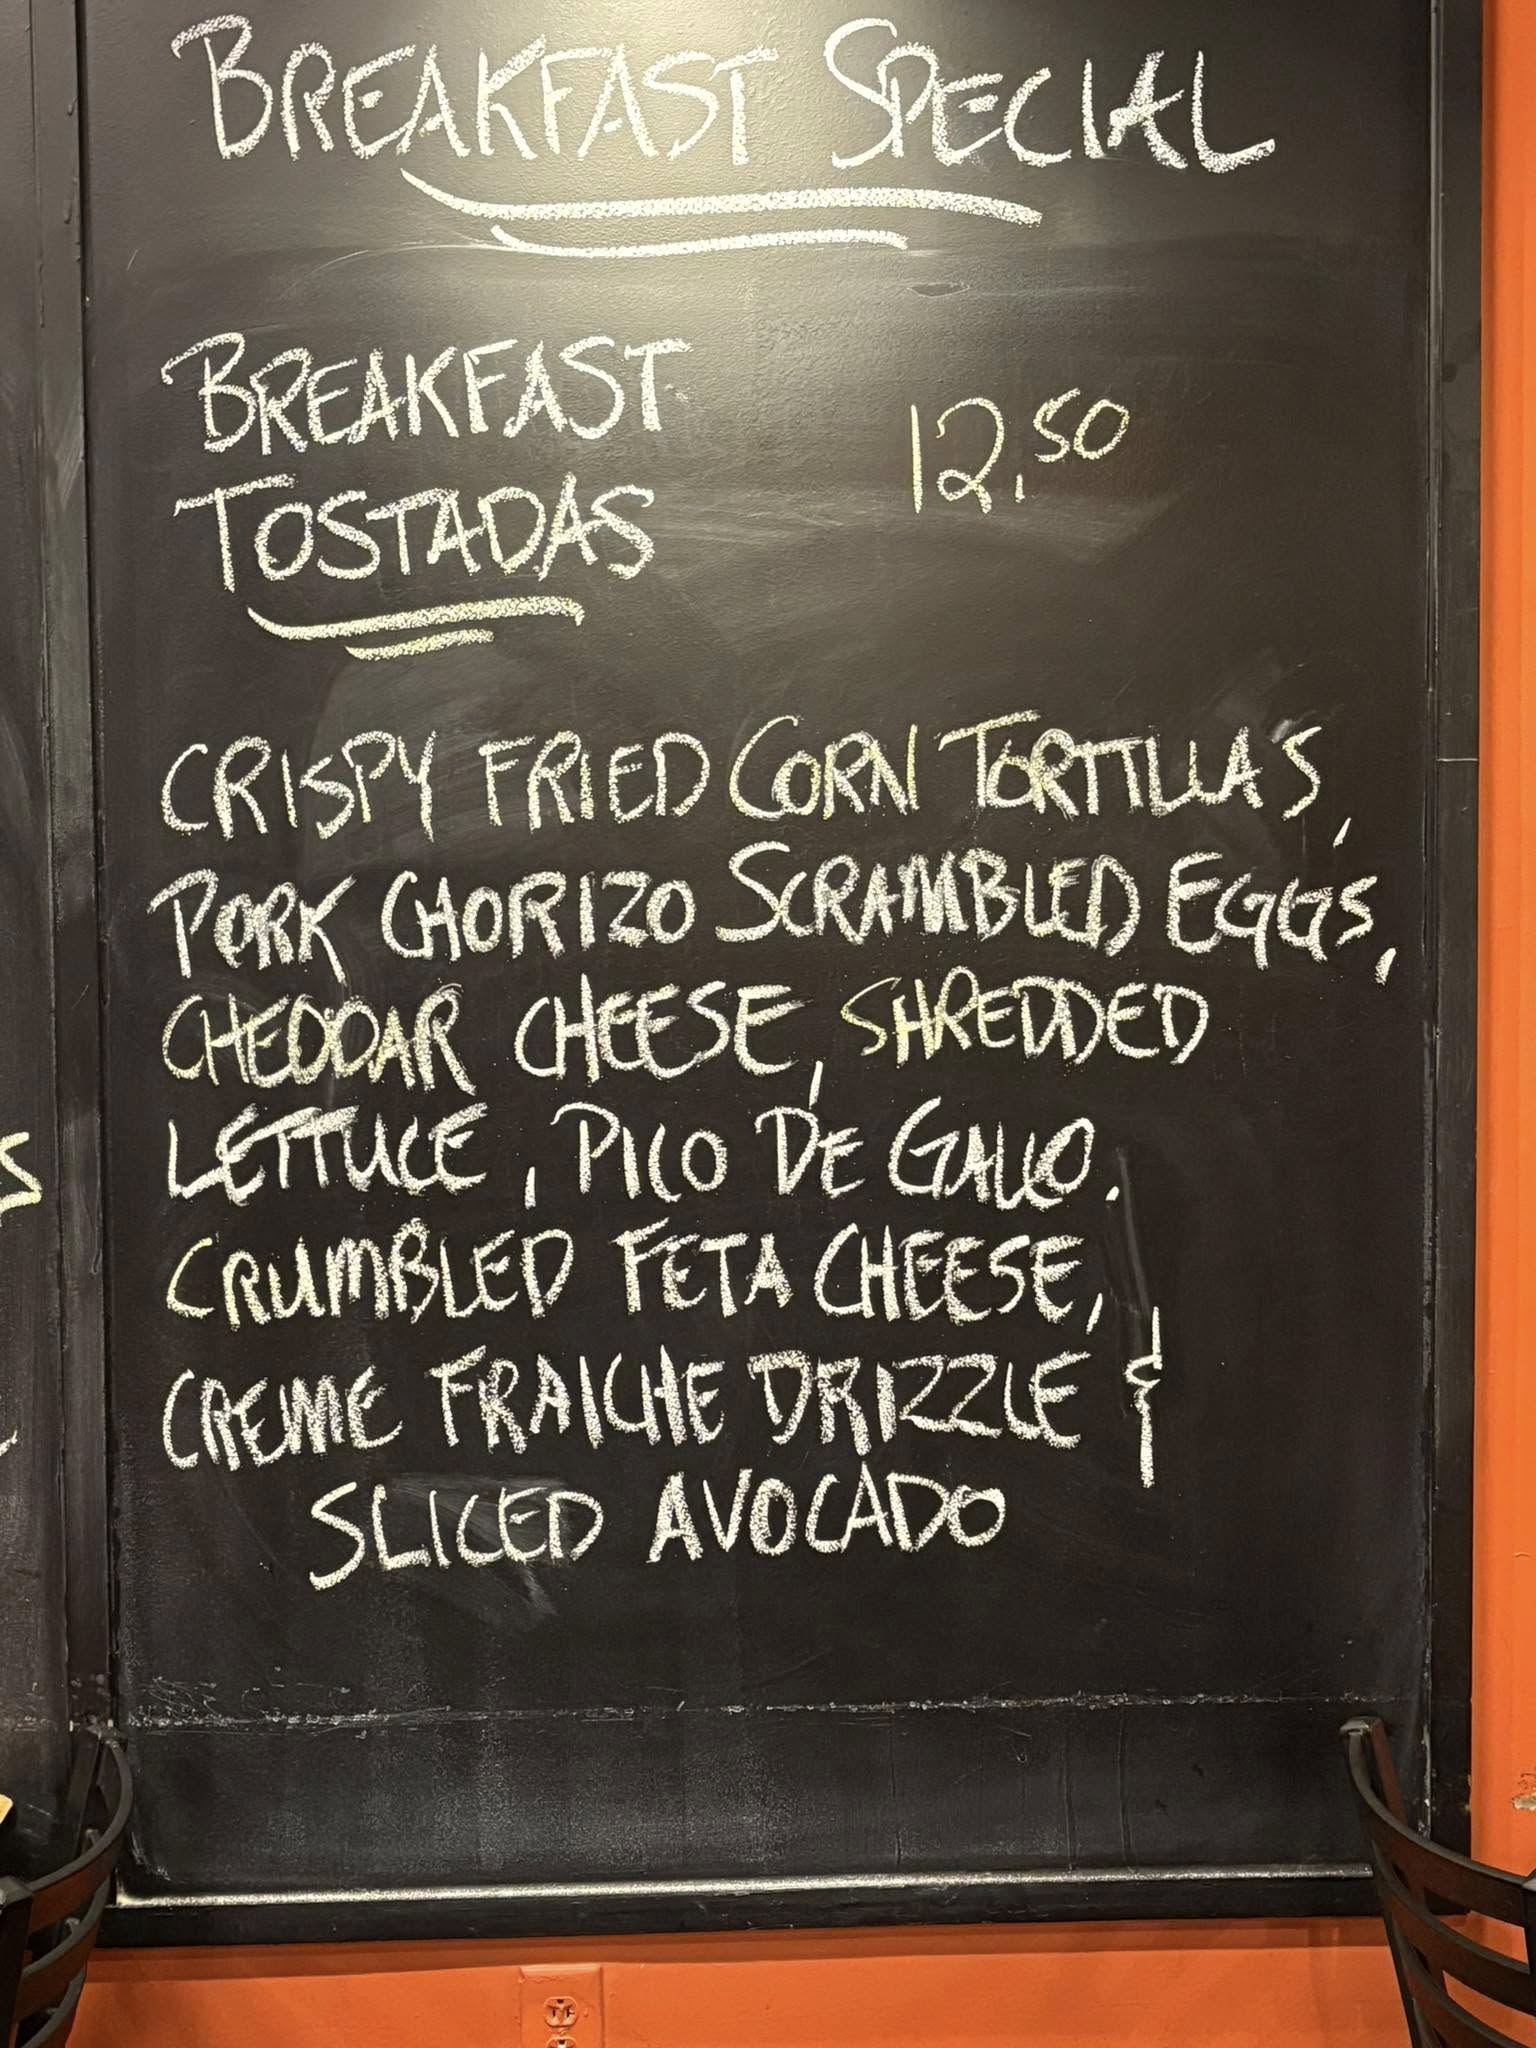 BREAKFAST SPECIAL
BREAKFAST
TOSTADAS
12.50
CRISPY FRIED CORN TORTILLA'S,
PORK CHORIZO SCRAMBLED EGGS,
CHEDDAR CHEESE, SHREDDED
LETTUCE, PICO DE GALLO.
CRUMBLED FETA CHEESE,
CREME FRAICHE DRIZZLE &
SLICED AVOCADO